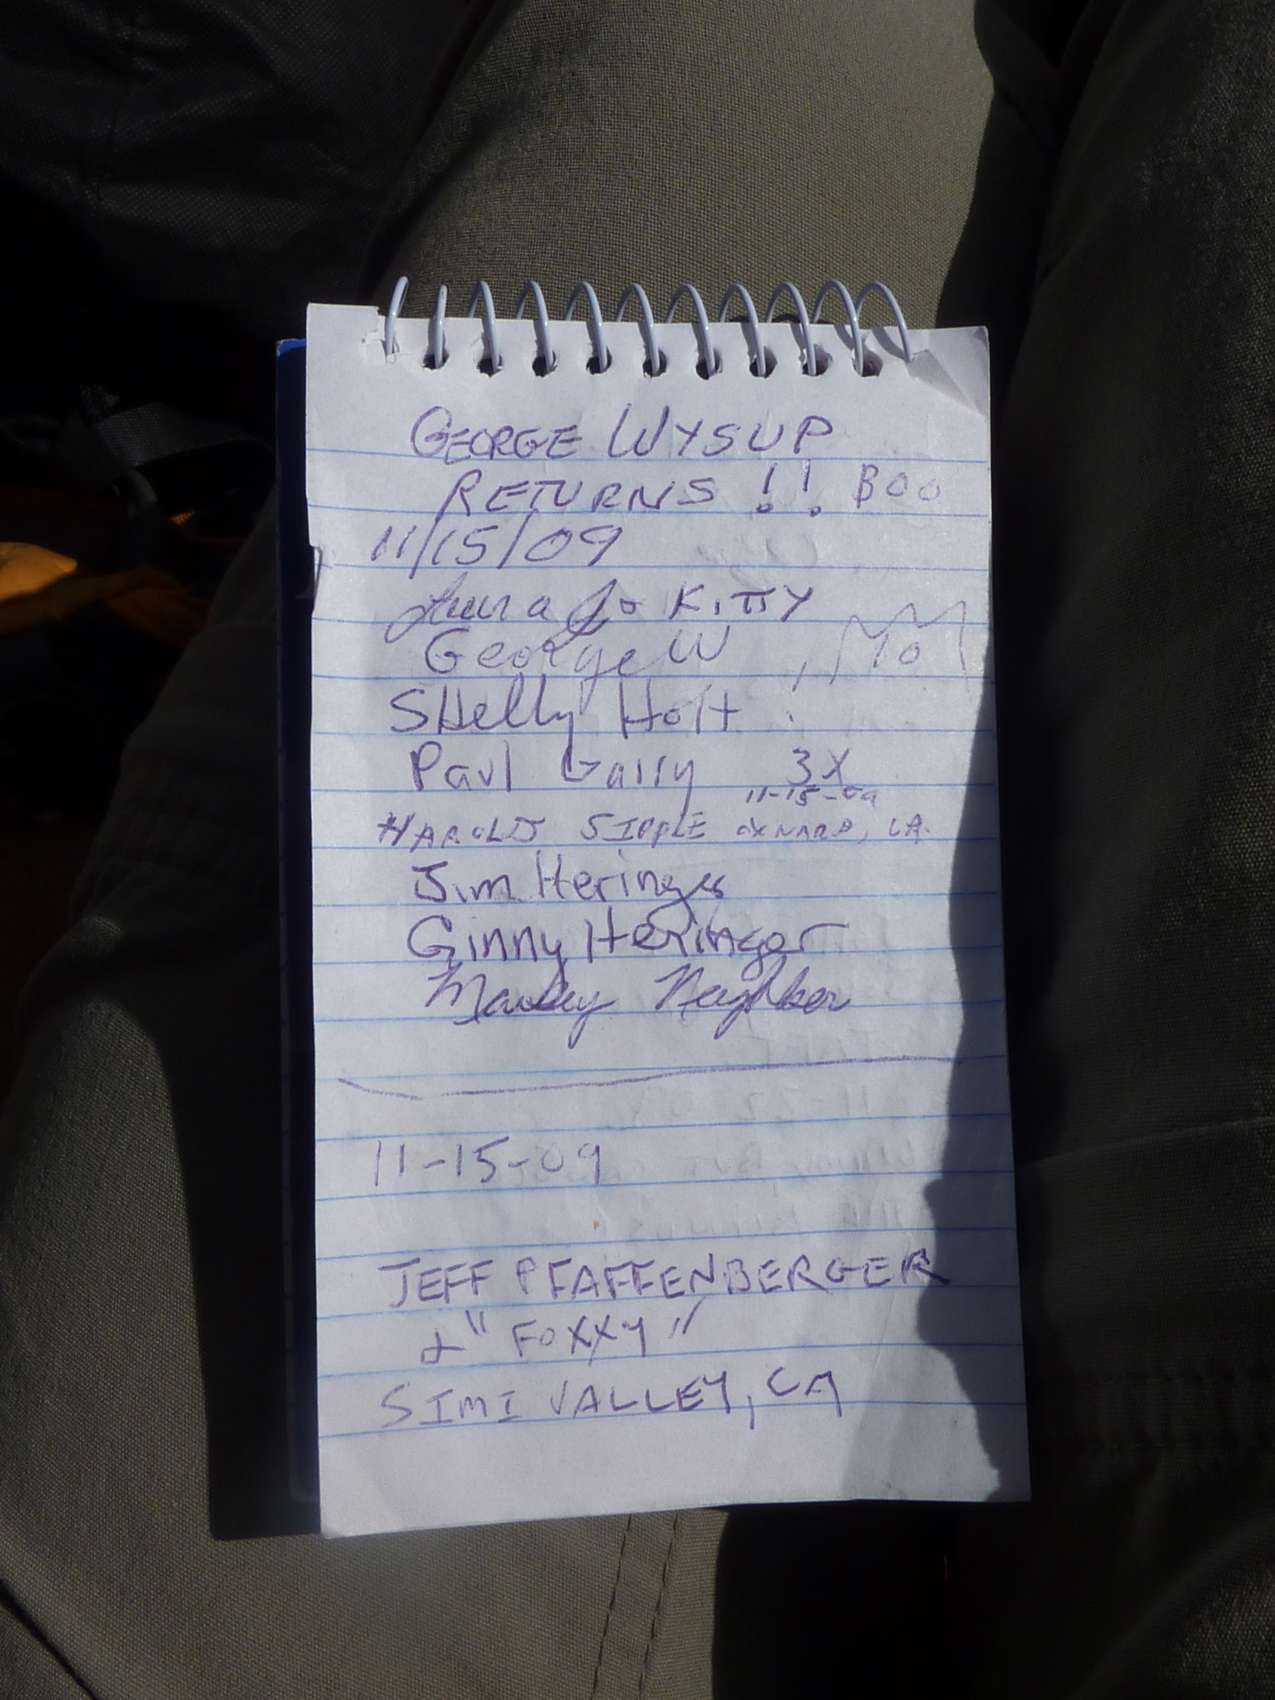 GEORGE WYSUP
RETURNS !! BOO
11/15/09
Laura Jo KITTY
George W
SHelly Holt
Paul Garry 3X
11-15-09
HAROLD SIPPLE OXNARD, CA.
Jim Heringer
Ginny Heringer
Neighbor
11-15-09
JEFF PFAFFENBERGER
& "FOXXY"
SIMI VALLEY, CA